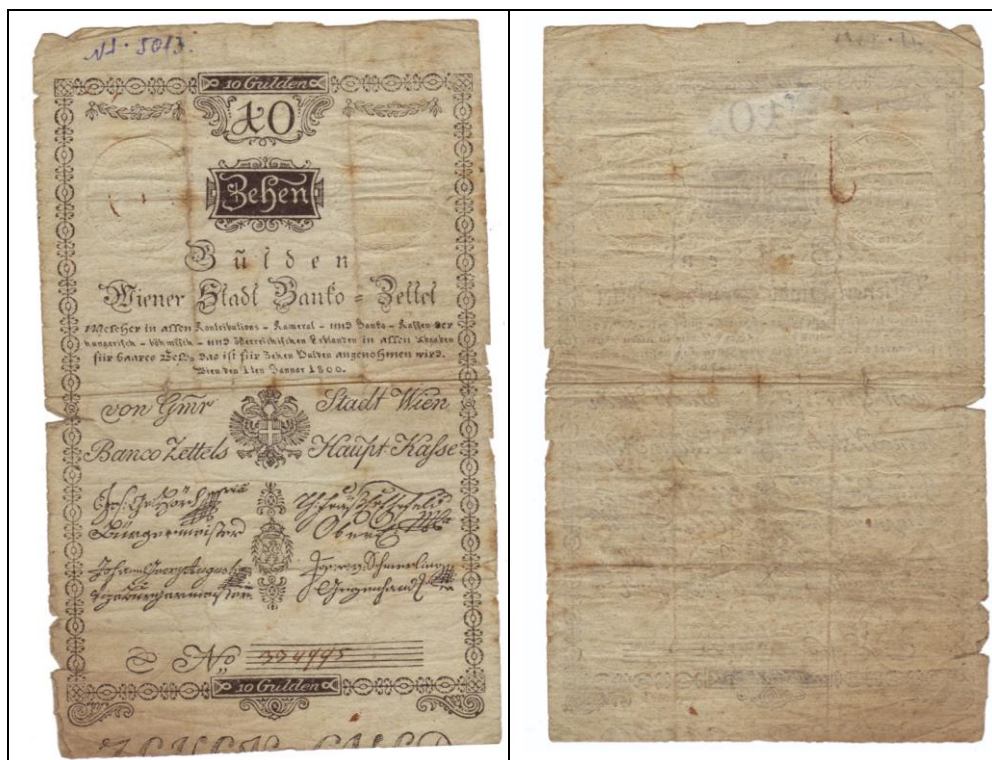 10 Gulden
10
Zehen
Gulden
Wiener Stadt Banko = Zettel
Welcher in allen Kontributions - Kameral - und Banko - Kassen der
hungarisch - böhmisch - und österreichischen Erblanden in allen Abgaben
für baares Geld, das ist für Zehen Gulden angenohmen wird.
Wien den 1ten Januar 1800.
von Gmr Stadt Wien
Banco Zettels Haupt Kasse
Bürgermeister
Johann Georg Augusti
Vizebürgermeister
No 334995
10 Gulden